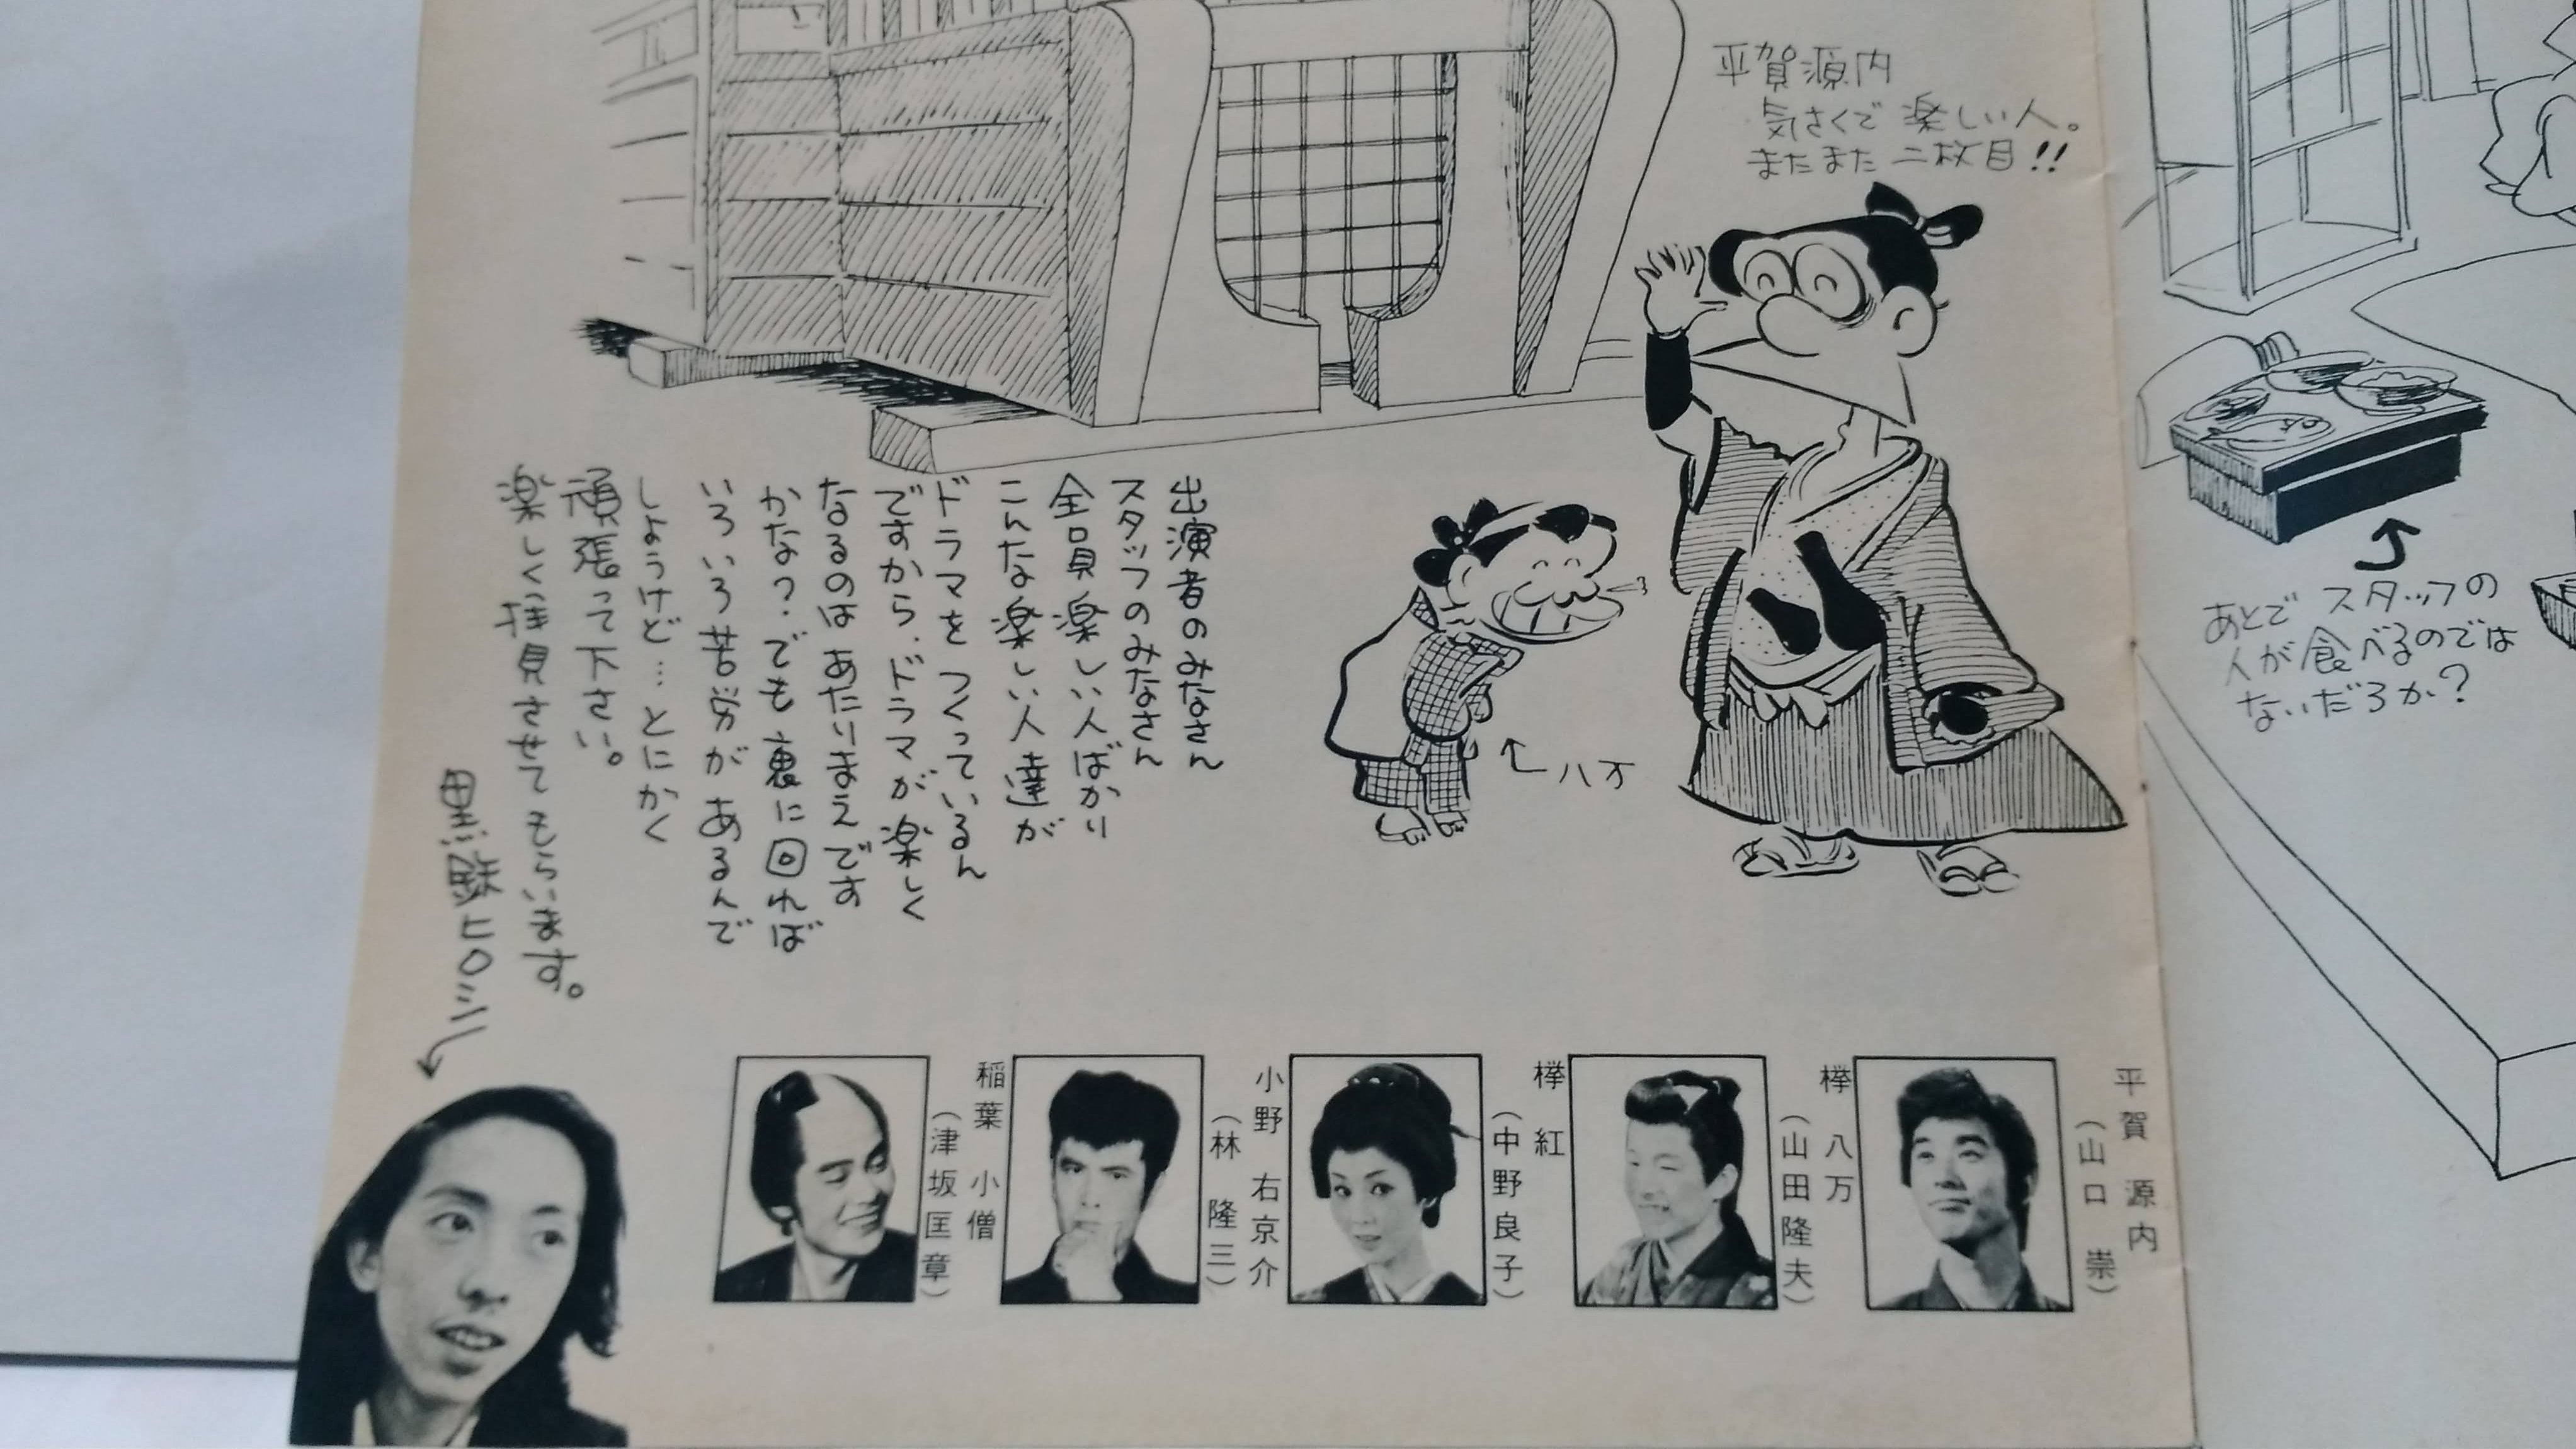 平賀源内
気さくで 楽しい人。
またまた 二枚目!!
あとで スタッフの
人が食べるのでは
ないだろか?
八万
出演者のみなさん
スタッフのみなさん
全員 楽しい人ばかり
こんな 楽しい人達が
ドラマを つくっているん
ですから、ドラマが 楽しく
なるのは あたりまえです
かな?でも 裏に 回れば
いろいろ 苦労が あるんで
しょうけど…とにかく
頑張って下さい。
楽しく拝見させてもらいます。
黒鉄ヒロシ
平賀 源内
(山口 崇)
欅 八万
(山田隆夫)
欅 紅
(中野良子)
小野 右京介
(林 隆三)
稲葉 小僧
(津坂匡章)